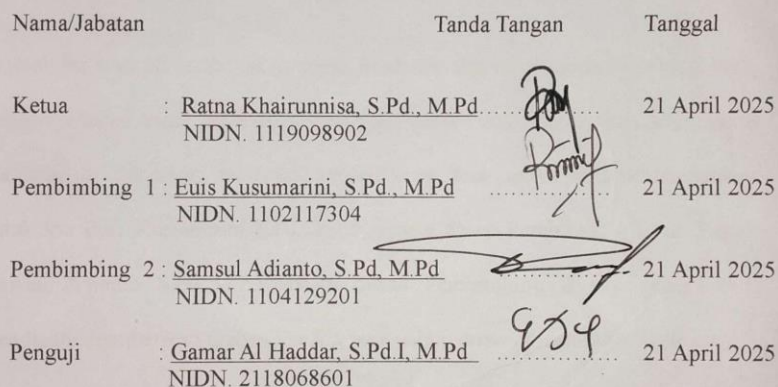 Nama/Jabatan Tanda Tangan Tanggal
Ketua : Ratna Khairunnisa, S.Pd., M.Pd.................. 21 April 2025
NIDN. 1119098902
Pembimbing 1 : Euis Kusumarini, S.Pd., M.Pd .................. 21 April 2025
NIDN. 1102117304
Pembimbing 2 : Samsul Adianto, S.Pd, M.Pd .................. 21 April 2025
NIDN. 1104129201
Penguji : Gamar Al Haddar, S.Pd.I, M.Pd .................. 21 April 2025
NIDN. 2118068601